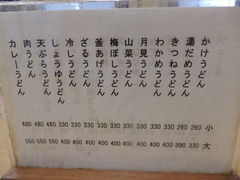 かけうどん
湯だめうどん
きつねうどん
わかめうどん
月見うどん
山菜うどん
梅ぼしうどん
釜あげうどん
ざるうどん
冷しうどん
しょうゆうどん
天ぷらうどん
肉うどん
カレーうどん
480 480 480 330 330 330 330 330 330 330 330 330 260 260 小
550 550 550 400 400 400 400 400 400 400 400 400 330 330 大